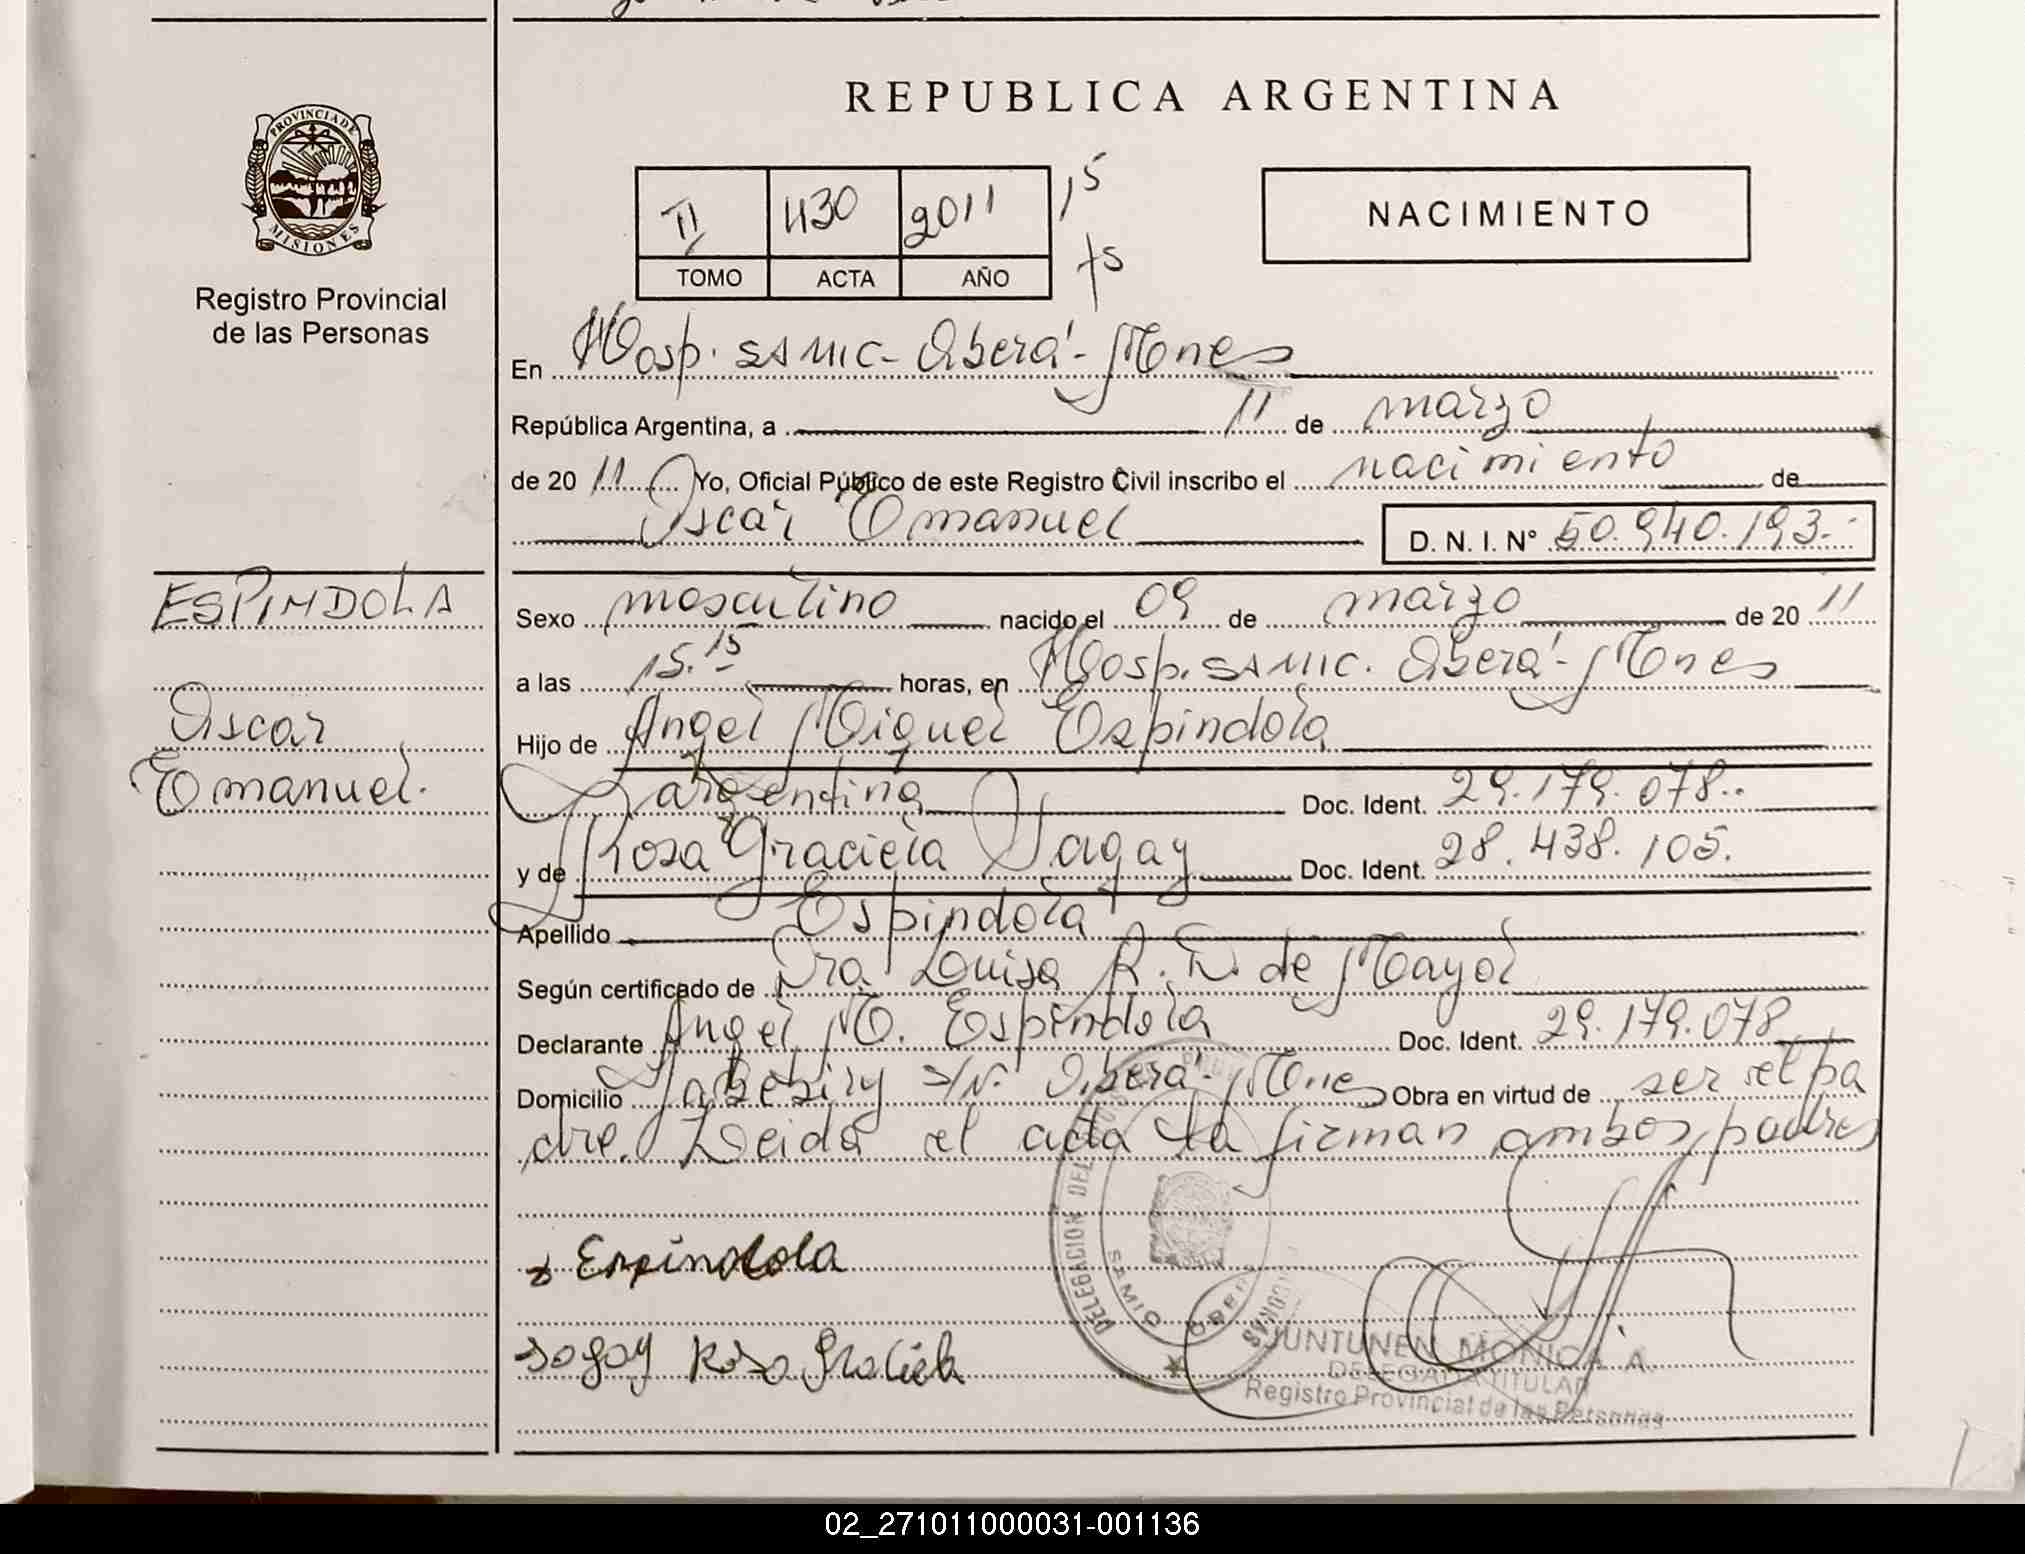 REPUBLICA ARGENTINA
PROVINCIA DE MISIONES
Registro Provincial
de las Personas
II 430 2011 15
TOMO ACTA AÑO
NACIMIENTO
En Hosp. SAMIC - Oberá - Mnes
República Argentina, a 11 de marzo
de 20 11 Yo, Oficial Público de este Registro Civil inscribo el nacimiento de
Oscar Emanuel D. N. I. N° 50.940.193.-
ESPINDOLA
Oscar
Emanuel.
Sexo masculino nacido el 09 de marzo de 20 11
a las 15.15 horas, en Hosp. SAMIC. Oberá - Mnes
Hijo de Angel Miguel Espindola
argentina Doc. Ident. 29.179.078..
y de Rosa Graciela Sagay Doc. Ident. 28.438.105.
Apellido Espindola
Según certificado de Dra. Luisa R. D. de Mayol
Declarante Angel M. Espindola Doc. Ident. 29.179.078
Domicilio Yabebiry s/N. Oberá - Mnes Obra en virtud de ser el pa
dre. Leida el acta la firman ambos padres
Espindola
Sagay Rosa Graciela
DELEGACION DEL
SAMIC OBERA
JUNTUNEN MONICA A.
DELEGADA TITULAR
Registro Provincial de las Personas
02_271011000031-001136